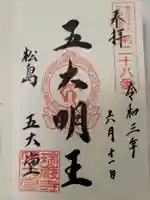 奉拝
令和三年
六月十一日
五大明王
松島
五大堂